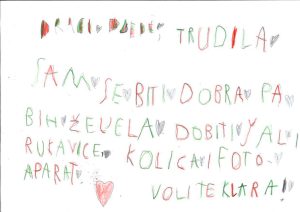 DRAGI TRUDILA
SAM SE BITI DOBRA PA
BIH DOBITI ŠAL I
RUKAVICE KOLICA I FOTO-
APARAT.
VOLI TE KLARA!